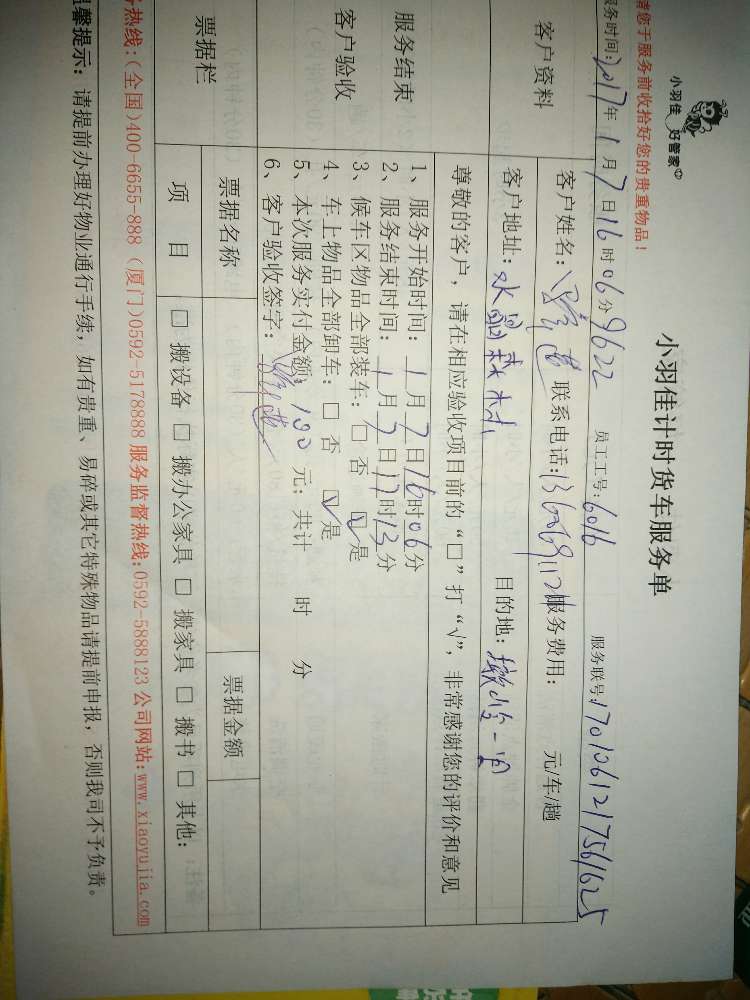 小羽佳 好管家
小羽佳计时货车服务单
您于服务前收拾好您的贵重物品！
务时间:2017年1月7日16时06分 9622 员工工号:6016 服务联号1701061217561625
客户资料
客户姓名: 联系电话: 服务费用: 元/车/趟
客户地址: 目的地:
服务结束
客户验收
尊敬的客户，请在相应验收项目前的“□”打“√”，非常感谢您的评价和意见
1、服务开始时间：1月7日16时06分
2、服务结束时间：1月7日17时13分
3、候车区物品全部装车：□ 否 ☑是
4、车上物品全部卸车：□ 否 ☑是
5、本次服务实付金额：100元；共计 时 分
6、客户验收签字：
票据栏
票据名称 票据金额
项 目 □ 搬设备 □ 搬办公家具 □ 搬家具 □ 搬书 □ 其他:
热线:(全国)400-6655-888 (厦门)0592-5178888 服务监督热线:0592-5888123 公司网站:www.xiaoyujia.com
馨提示: 请提前办理好物业通行手续，如有贵重、易碎或其它特殊物品请提前申报，否则我司不予负责。